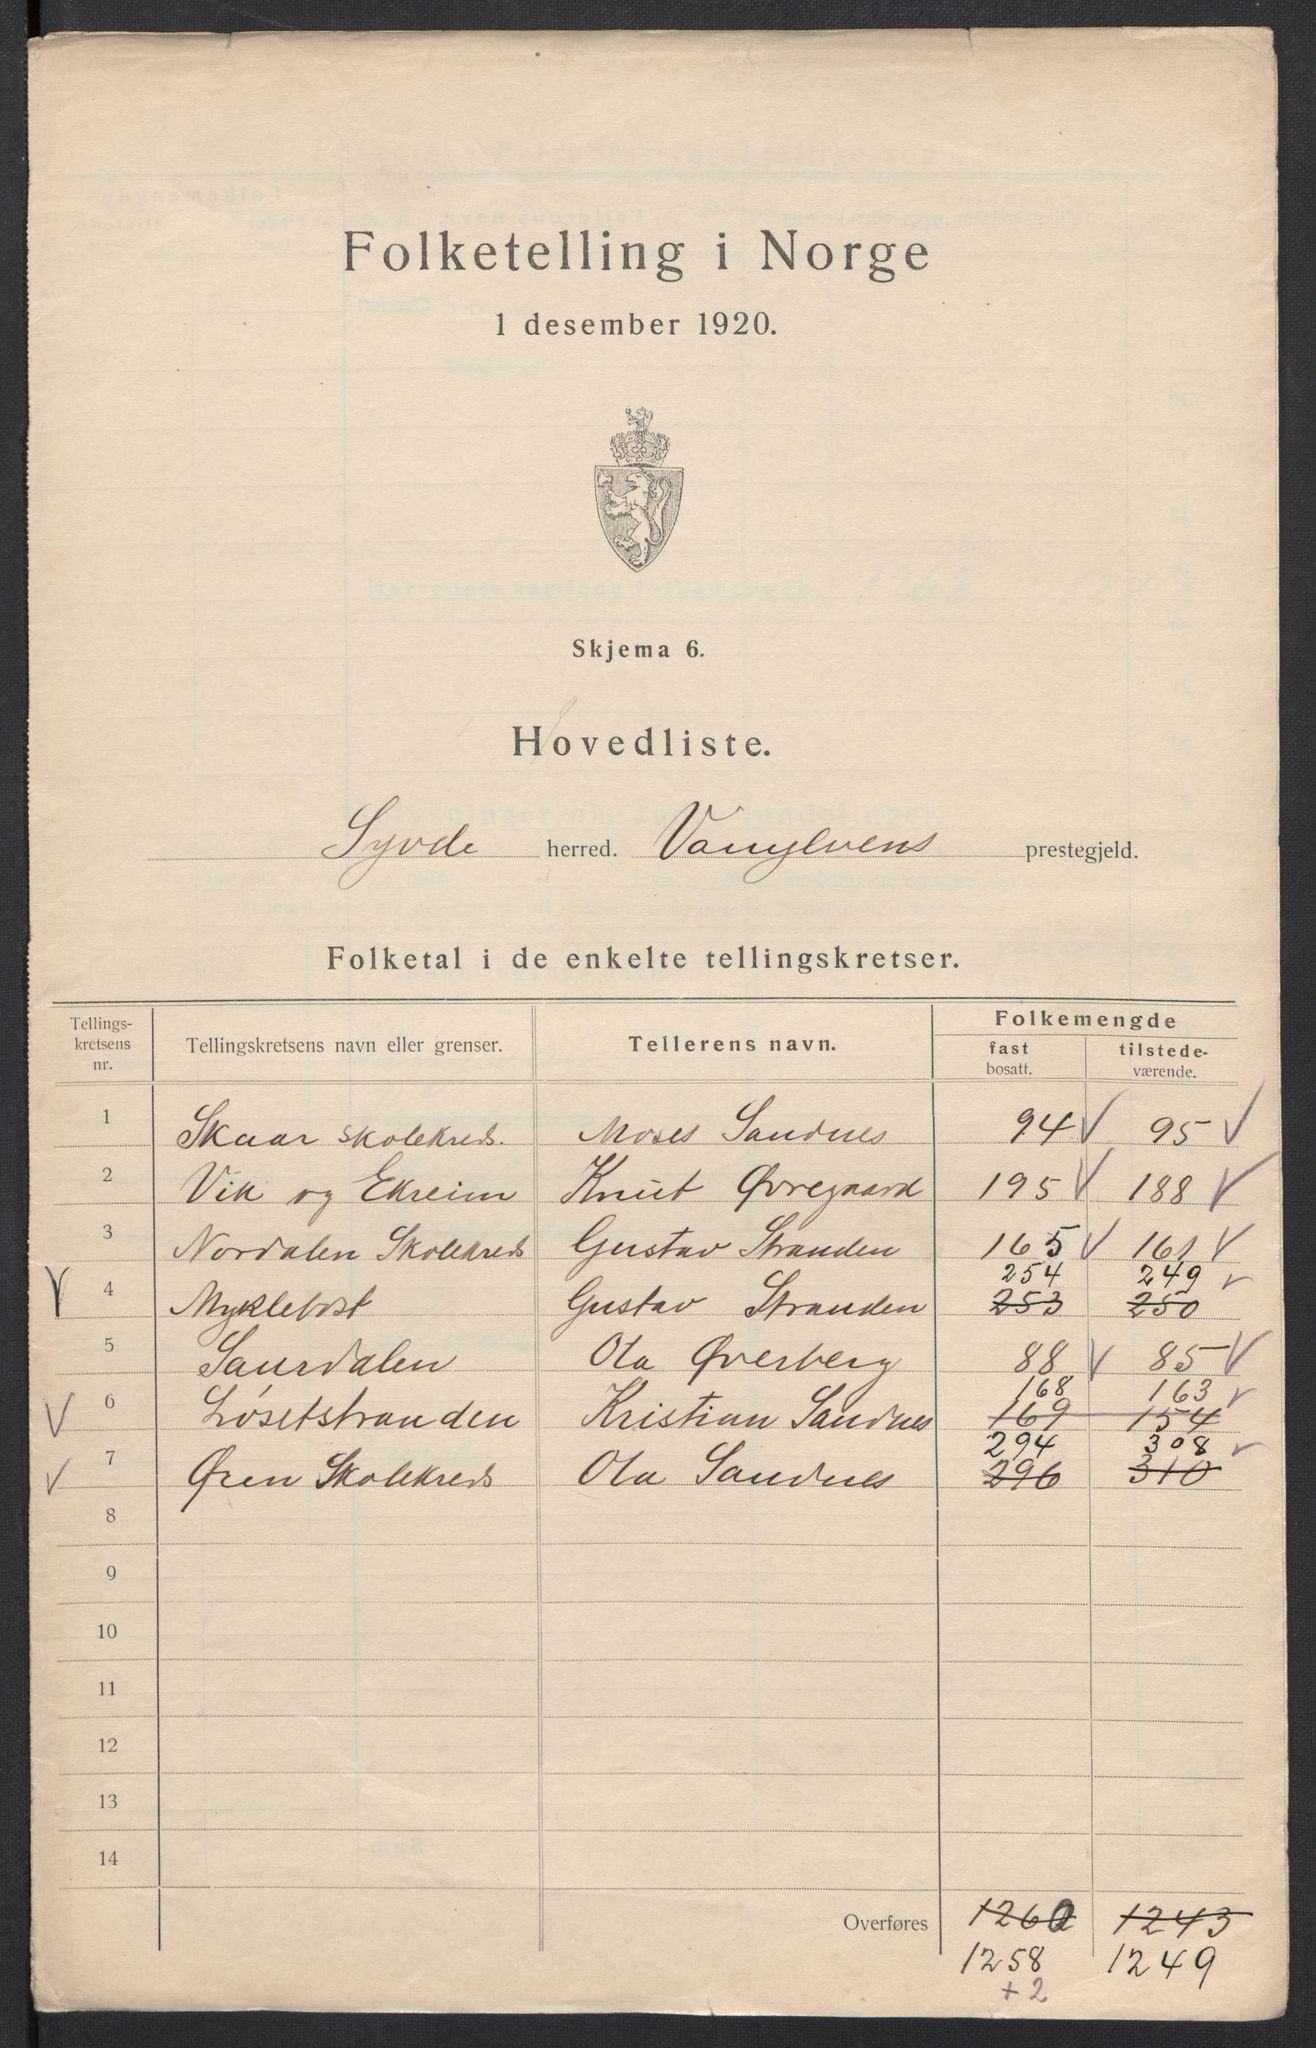 Folketelling i Norge
1 desember 1920.
Skjema 6.
Hovedliste.
Syvde herred. Vanylvens prestegjeld.
Folketal i de enkelte tellingskretser.
Tellings-kretsens nr. Tellingskretsens navn eller grenser. Tellerens navn. Folkemengde fast bosatt. tilstede-værende.
1 Skaar skolekreds. Moses Sandnes 94 95
2 Vik og Ekreim Knut Øvregaard 195 188
3 Nordalen Skolekreds Gustav Stranden 165 161
254 249
4 Myklebost Gustav Stranden 253 250
5 Saurdalen Ola Øverberg 88 85
168 163
6 Løsetstranden Kristian Sandnes 169 154
294 308
7 Øren Skolekreds Ola Sandnes 296 310
8
9
10
11
12
13
14
Overføres 1260 1243
1258 1249
+2